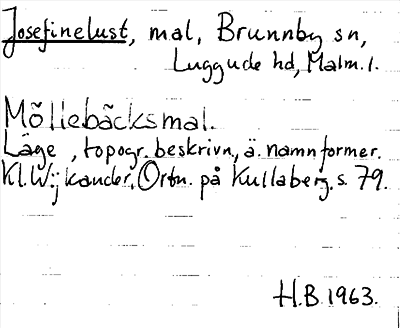 Josefinelust, mal, Brunnby sn,
Luggude hd, Malm. l.
Möllebäcksmal.
Läge, topogr. beskrivn, ä. namnformer.
Kl. Wijkander, Ortn. på Kullaberg, s. 79.
H.B. 1963.